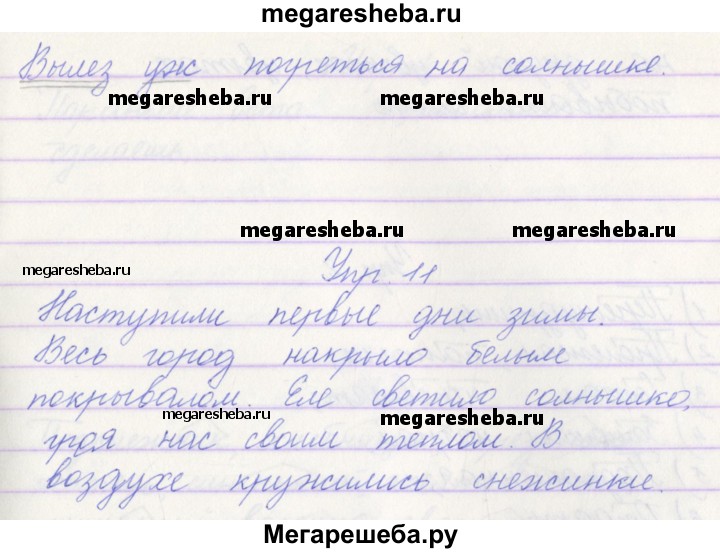 megaresheba.ru
Вылез уж погреться на солнышке.
megaresheba.ru megaresheba.ru
megaresheba.ru megaresheba.ru
Упр. 11
megaresheba.ru
Наступили первые дни зимы.
Весь город накрыло белым
покрывалом. Еле светило солнышко,
megaresheba.ru megaresheba.ru
грея нас своим теплом. В
воздухе кружились снежинки.
Мегарешеба.ру